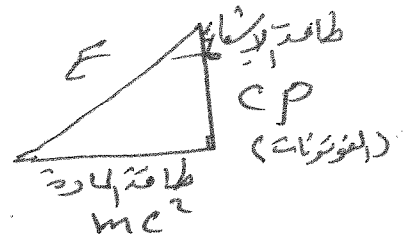 طاقة الإشعاع
E
cp
(الفوتونات)
طاقة المادة
mc²